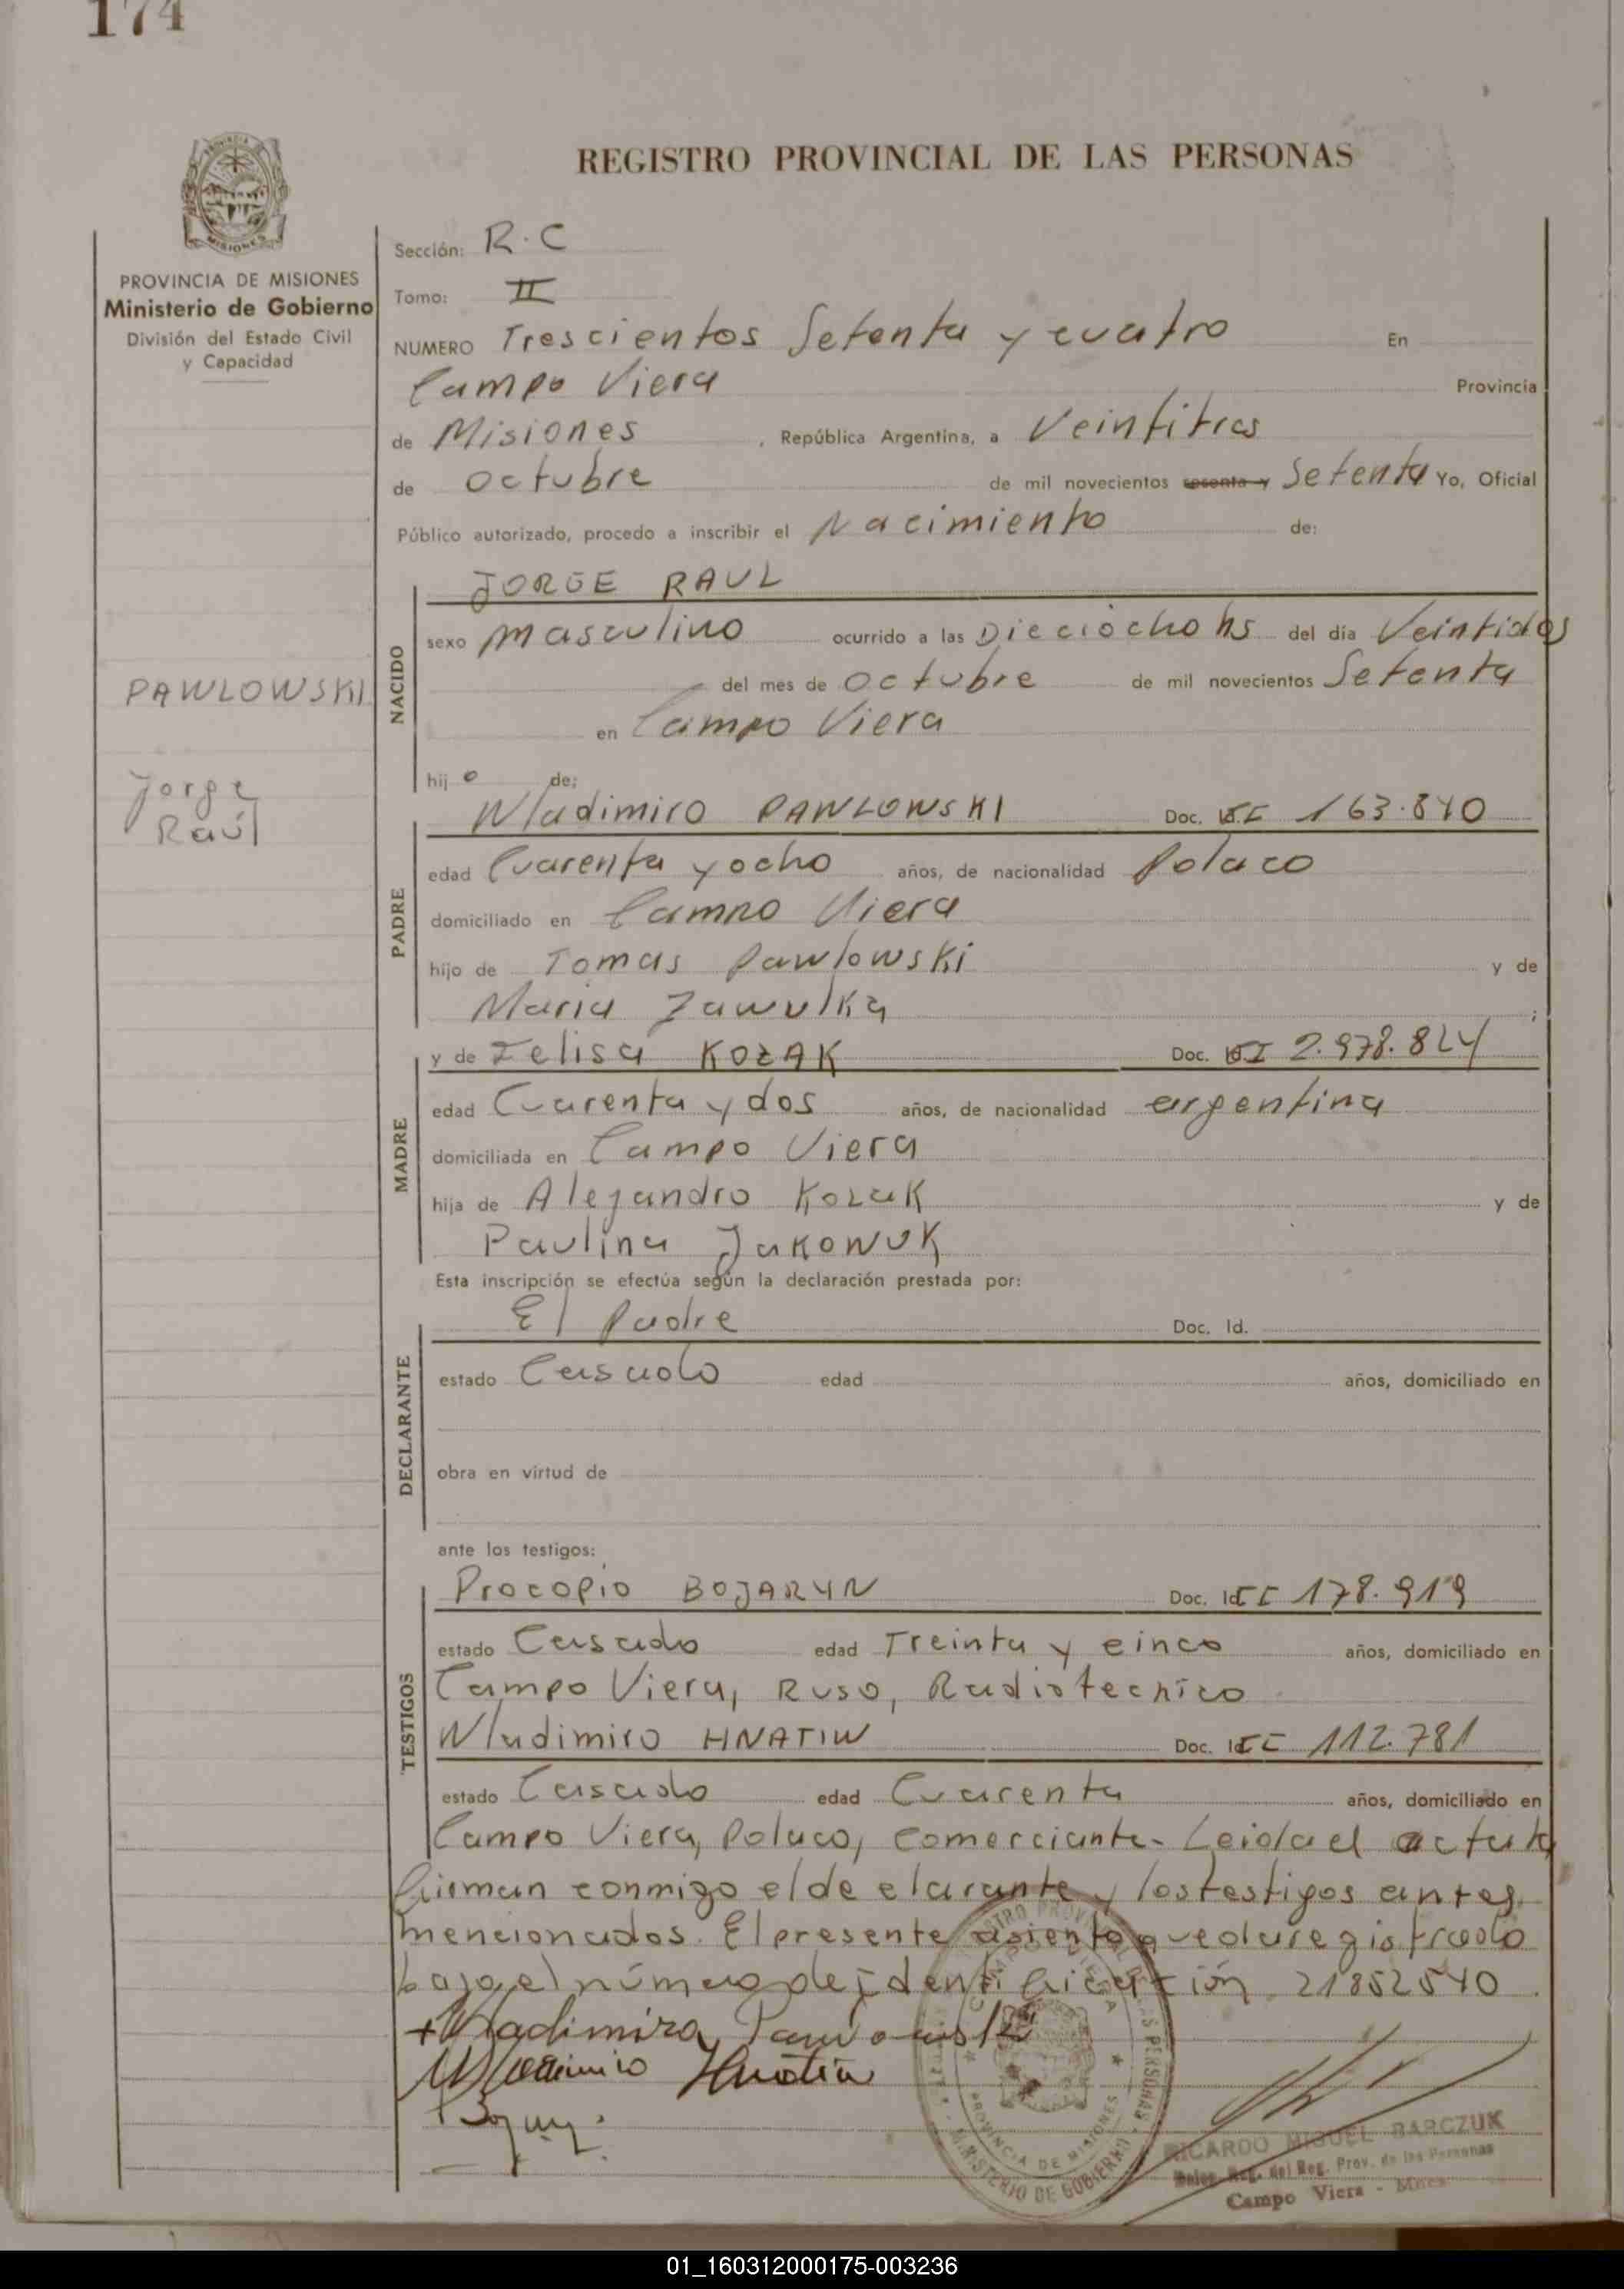 174
REGISTRO PROVINCIAL DE LAS PERSONAS
PROVINCIA DE MISIONES
Ministerio de Gobierno
División del Estado Civil
y Capacidad
Sección: R.C
Tomo: II
NUMERO Trescientos Setenta y cuatro En
Campo Viera Provincia
de Misiones, República Argentina, a Veintitres
de octubre de mil novecientos sesenta y Setenta Yo, Oficial
Público autorizado, procedo a inscribir el Nacimiento de:
JORGE RAUL
NACIDO
sexo masculino ocurrido a las Dieciocho hs del día Veintidos
del mes de octubre de mil novecientos Setenta
en Campo Viera
PAWLOWSKI
Jorge
Raúl
hij o de:
Wladimiro PAWLOWSKI Doc. CI 163.840
PADRE
edad Cuarenta y ocho años, de nacionalidad Polaco
domiciliado en Campo Viera
hijo de Tomas Pawlowski y de
Maria Zawulka ;
y de Felisa KOZAK Doc. CI 2.978.824
MADRE
edad Cuarenta y dos años, de nacionalidad argentina
domiciliada en Campo Viera
hija de Alejandro Kozak y de
Paulina JAKOWUK
Esta inscripción se efectúa según la declaración prestada por:
El Padre Doc. Id.
DECLARANTE
estado Casado edad años, domiciliado en
obra en virtud de
ante los testigos:
Procopio BOJARYN Doc. Id CI 178.919
TESTIGOS
estado Casado edad Treinta y cinco años, domiciliado en
Campo Viera, Ruso, Radiotecnico
Wladimiro HNATIW Doc. Id CI 112.781
estado Casado edad Cuarenta años, domiciliado en
Campo Viera, Polaco, comerciante- Leida el acta la
firman conmigo el declarante y los testigos antes
mencionados. El presente asiento queda registrado
bajo el número de Identificación 21852540
+Wladimiro Pawlowski
Wladimiro Hnatiw
REGISTRO PROVINCIAL DE LAS PERSONAS
CAMPO VIERA
PROVINCIA DE MISIONES
MINISTERIO DE GOBIERNO
RICARDO MIGUEL BARCZUK
Deleg. Reg. del Reg. Prov. de las Personas
Campo Viera - Mnes.
01_160312000175-003236